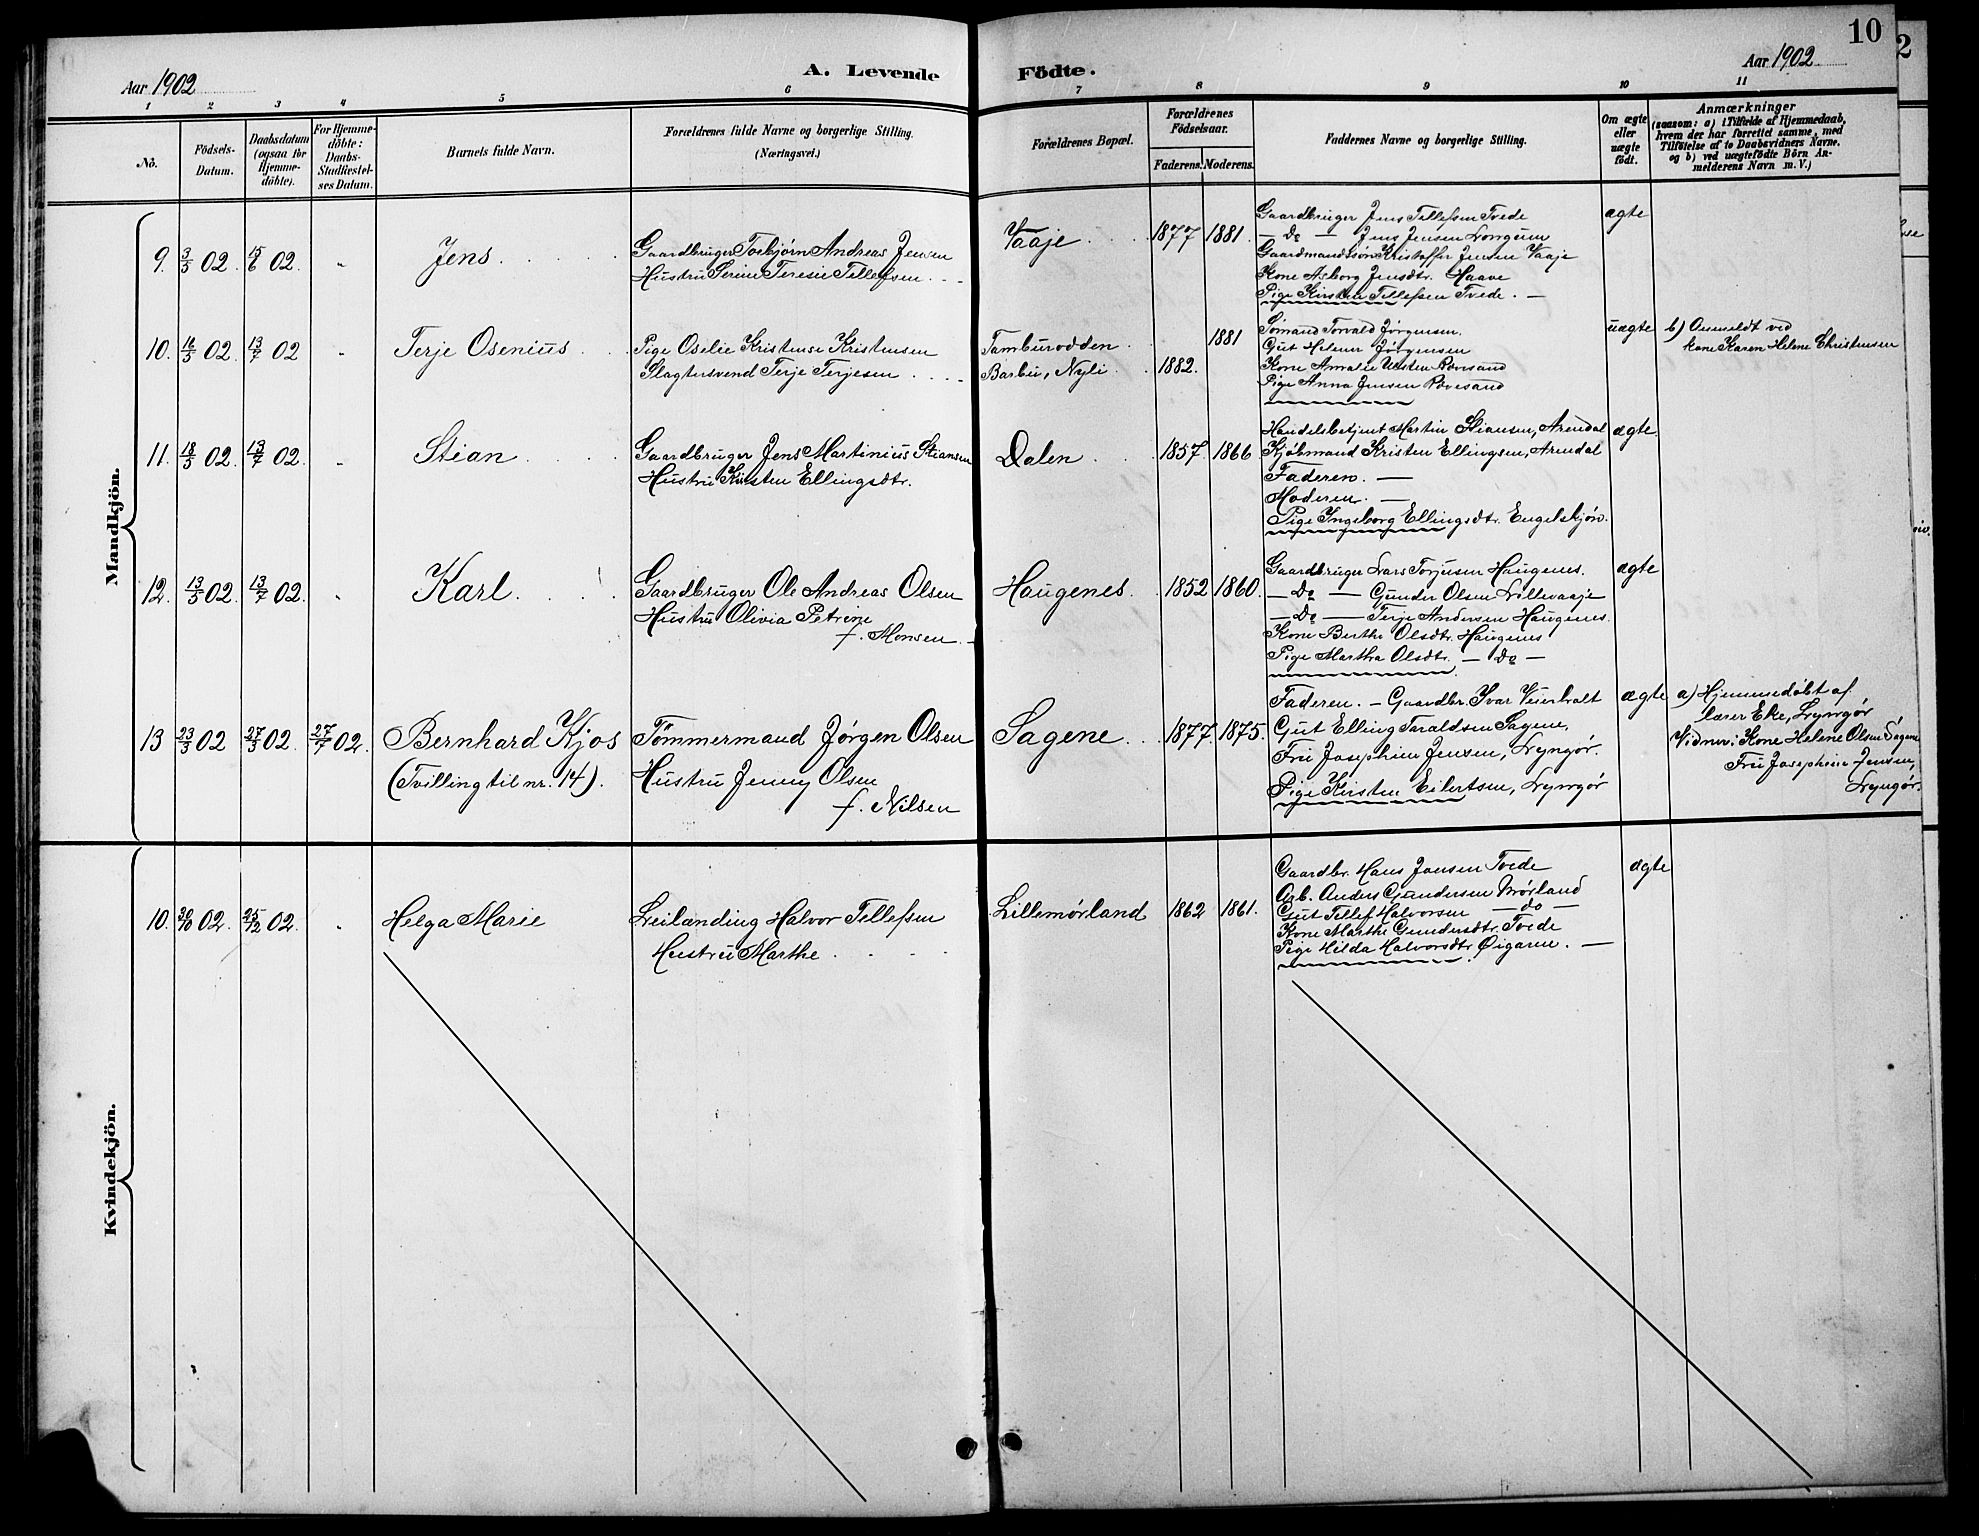 10
2
Aar 1902
A. Levende
Födte.
Aar 1902
1 2 3 4 5 6 7 8 9 10 11
No.
Födsels-
Datum.
Daabsdatum
(ogsaa for
Hjemme-
döbte).
For Hjemme-
döbte:
Daabs-
Stadfæstel-
ses Datum.
Barnets fulde Navn.
Forældrenes fulde Navne og borgerlige Stilling.
(Næringsvei.)
Forældrenes Bopæl.
Forældrenes
Födselsaar.
Faderens. Moderens.
Faddernes Navne og borgerlige Stilling.
Om ægte
eller
uægte
födt.
Anmærkninger
(saasom: a) i Tilfælde af Hjemmedaab,
hvem der har forrettet samme, med
Tilföielse af to Daabsvidners Navne.
og b) ved uægtefödte Börn An-
melderens Navn m. V.)
Mandkjön.
9. 3/5 02. 15/6 02. "
Jens
Gaardbruger Torbjørn Andreas Jensen
Hustru Serine Teresie Tellefsen
Vaaje
1877 1881.
Gaardbruger Jens Tellefsen Tvede
— Do — Jens Jensen Longum
Gaardmandssøn Kristoffer Jensen Vaaje
Kone Asborg Jensdtr. Haave
Pige Kirsten Tellefsen Tvede. —
ægte
10. 16/5 02. 13/7 02 "
Terje Osenius
Pige Oselie Kristense Kristensen
Slagtersvend Terje Terjesen
Tamburodden
Barbu, Nyli
1881
1882.
Sømand Torvald Jørgensen.
Gut Helmer Jørgensen
Kone Amalie Uhsten Revesand
Pige Anna Jensen Revesand
uægte
b) Anmeldt ved
kone Karen Helene Christensen
11. 18/5 02. 13/7 02. "
Stian
Gaardbruger Jens Martinius Stiansen
Hustru Kirsten Ellingsdtr.
Dalen
1857. 1866
Handelsbetjent Martin Stiansen, Arendal
Kjøbmand Kristen Ellingsen, Arendal
Faderen. —
Moderen. —
Pige Ingeborg Ellingsdtr. Engelskjøn.
ægte.
12. 13/5 02. 13/7 02. "
Karl
Gaardbruger Ole Andreas Olsen
Hustru Olivia Petrine
f. Monsen
Haugenes
1852 1860.
Gaardbruger Lars Torjusen Haugenes.
— Do — Gunder Olsen Lillevaaje
— Do — Terje Andersen Haugenes.
Kone Berthe Olsdtr. Haugenes
Pige Martha Olsdtr. — Do —
ægte
13 23/3 02 27/3 02. 27/7 02.
Bernhard Kjos
(Tvilling til nr. 14).
Tømmermand Jørgen Olsen
Hustru Jenny Olsen
f. Nilsen
Sagene
1877. 1875.
Faderen. — Gaardbr. Ivar Veierholt
Gut Elling Taraldsen Sagene.
Fru Josephine Jensen, Lyngør.
Pige Kirsten Eilertsen, Lyngør
ægte
a) Hjemmedøbt af
lærer Eke, Lyngør
Vidner: Kone Helene Olsen Sagene
Fru Josephine Jensen,
Lyngør.
Kvindekjön.
10. 30/10 02. 25/12 02. "
Helga Marie
Leilænding Halvor Tellefsen
Hustru Marthe
Lillemørland
1862 1861.
Gaardbr. Hans Jansen Tvede
Arb. Anders Gundersen Mørland
Gut Tellef Halvorsen — do —
Kone Marthe Gundersdtr. Tvede
Pige Hilda Halvorsdtr. Øigarne. —
ægte